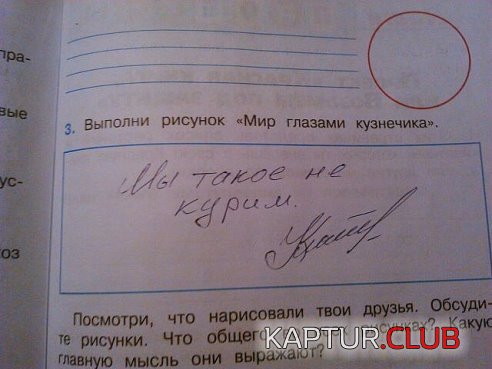 пра-
вые
ус-
оз
3. Выполни рисунок «Мир глазами кузнечика».
Мы такое не
курим.
Посмотри, что нарисовали твои друзья. Обсуди-
те рисунки. Что общего рисунках? Какую
главную мысль они выражают?
KAPTUR.CLUB